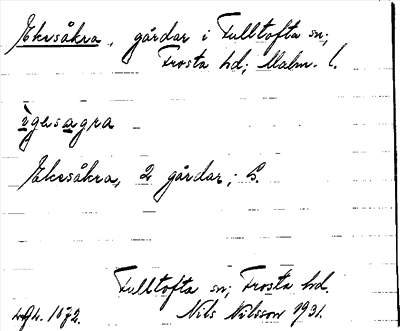 Ekesåkra, gårdar i Fulltofta sn;
Frosta hd; Malm. l.
ègesagra
Ekesåkra, 2 gårdar; G.
Fulltofta sn; Frosta hd.
Nils Nilsson 1931.